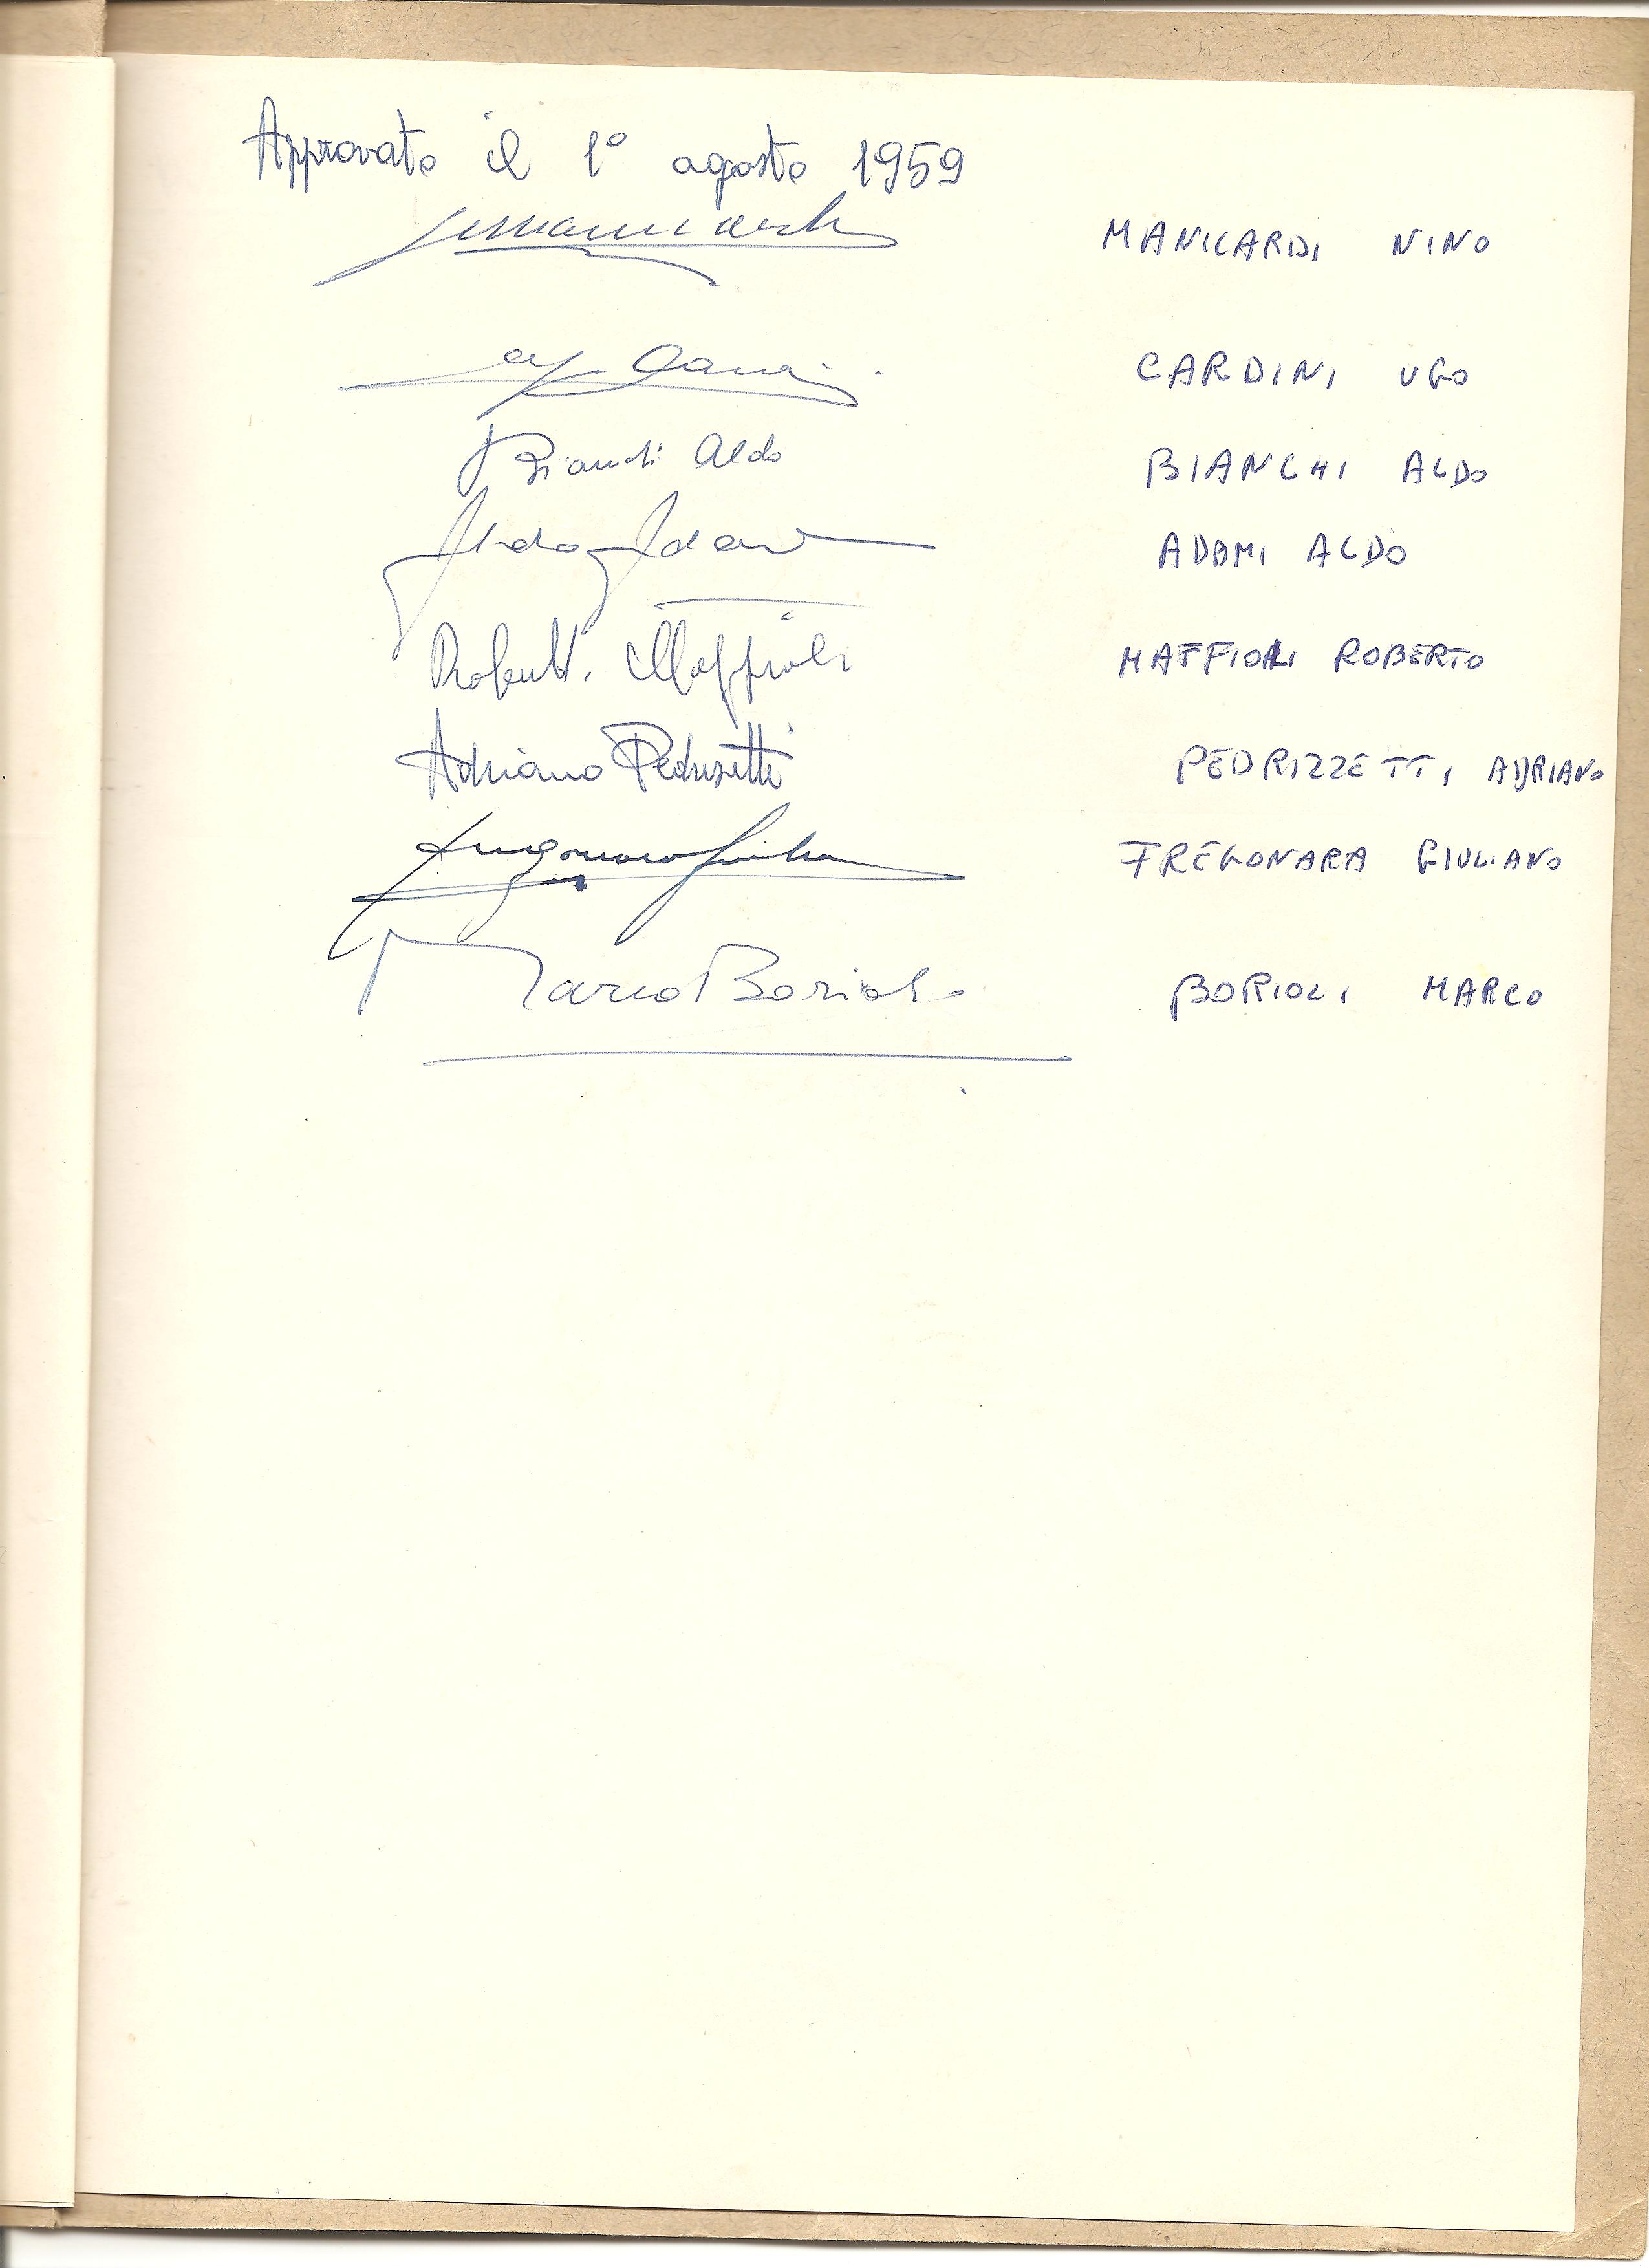 Approvato il 1° agosto 1959
MANICARDI NINO
CARDINI UGO
Bianchi Aldo BIANCHI ALDO
Aldo Adami ADAMI ALDO
Roberto MAFFIOLI ROBERTO
Adriano Pedrizetti PEDRIZZETTI ADRIANO
Fregonara Giuliano FREGONARA GIULIANO
Marco Borioli BORIOLI MARCO